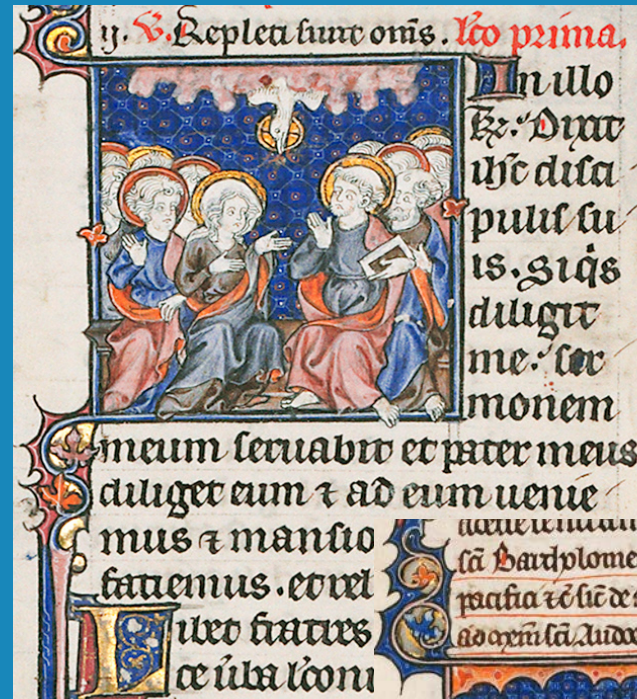 ij. V. Repleti sunt oms. lco prima.
In illo
tp̄r. Dixit
ihc disci
pulis su
is. Siq̄s
diligit
me: ser
monem
meum seruabit et pater meus
diliget eum ⁊ ad eum uenie
mus ⁊ mansio
faciemus. et rel
Libet fratres
ce ūba lc̄oni
sc̄i Barthplome
pacifica